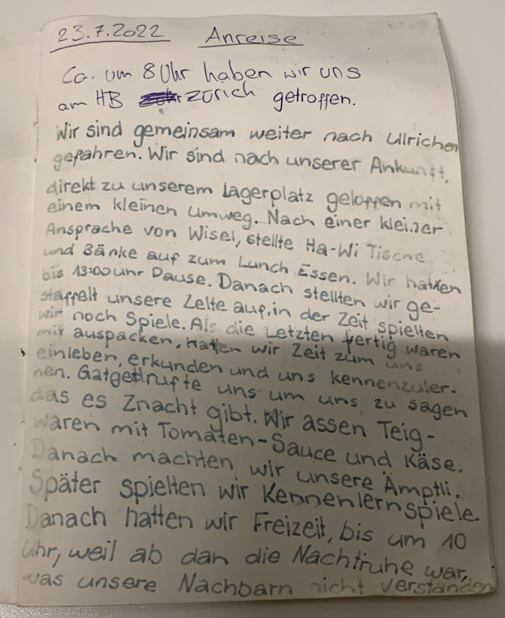 23.7.2022 Anreise
Ca. um 8 Uhr haben wir uns
am HB Zürich getroffen.
Wir sind gemeinsam weiter nach Ulrichen
gefahren. Wir sind nach unserer Ankunft,
direkt zu unserem Lagerplatz geloffen mit
einem kleinen Umweg. Nach einer kleiner
Ansprache von Wisel, stellte Ha-Wi Tische
und Bänke auf zum Lunch Essen. Wir hatten
bis 13:00 Uhr Pause. Danach stellten wir ge-
staffelt unsere Zelte auf, in der Zeit spielten
wir noch Spiele. Als die Letzten fertig waren
mit auspacken, hatten wir Zeit zum uns
einleben, erkunden und uns kennenzuler-
nen. rufte uns um uns zu sagen
das es Znacht gibt. Wir assen Teig-
waren mit Tomaten-Sauce und Käse.
Danach machten wir unsere Ämptli.
Später spielten wir Kennenlernspiele
Danach hatten wir Freizeit, bis um 10
Uhr, weil ab dan die Nachtruhe war,
was unsere Nachbarn nicht verstanden